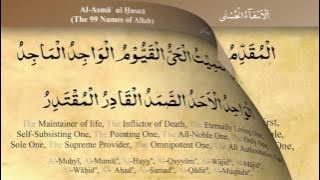 Al-Asmā' ul Ḥusnā
(The 99 Names of Allah)
الْمُقَدِّمُ
الْمُمِيتُ الْحَيُّ الْقَيُّومُ الْوَاجِدُ الْمَاجِدُ
الْوَاحِدُ الْأَحَدُ الصَّمَدُ الْقَادِرُ الْمُقْتَدِرُ
The Maintainer of life, The Inflictor of Death, The Eternally Living One,
Self-Subsisting One, The Pointing One, The All-Noble One, The Only One,
Sole One, The Supreme Provider, The Omnipotent One, The All Authoritative
Al-Muḥyī, Al-Mumīt, Al-Ḥayy, Al-Qayyūm, Al-Wājid, Al-Mājid
Al-Wāḥid, Al-Aḥad, Aṣ-Ṣamad, Al-Qādir, Al-Muqtadir